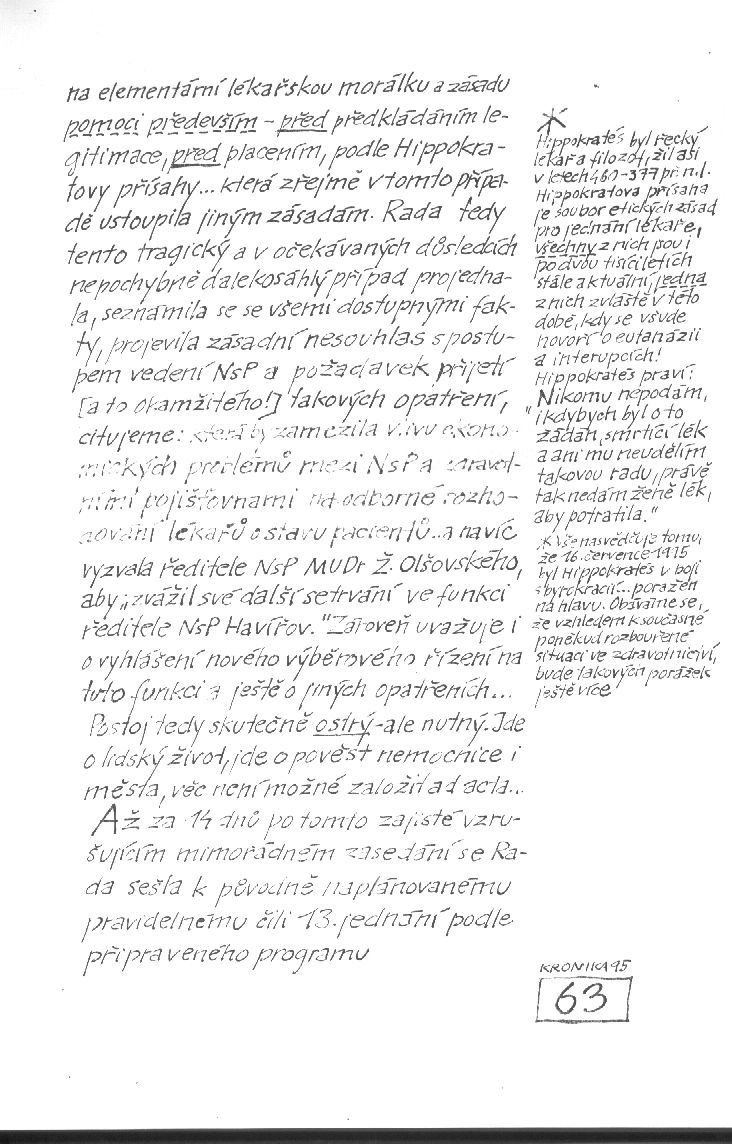 na elementární lékařskou morálku a zásadu
pomoci především - před předkládáním le-
gitimace, před placením, podle Hippokra-
tovy přísahy... která zřejmě v tomto přípa-
dě ustoupila jiným zásadám. Rada tedy
tento tragický a v očekávaných důsledcích
nepochybně dalekosáhlý případ projedna-
la, seznámila se se všemi dostupnými fak-
ty, projevila zásadní nesouhlas s postu-
pem vedení NsP a požadavek přijetí
[a to okamžitého!] takových opatření,
citujeme: která by zamezila vlivu ekono-
mických problémů mezi NsP a zdravot-
ními pojišťovnami na odborné rozho-
dování lékařů o stavu pacientů..a navíc
vyzvala ředitele NsP MUDr Ž. Olšovského,
aby „zvážil své další setrvání ve funkci
ředitele NsP Havířov." Zároveň uvažuje i
o vyhlášení nového výběrového řízení na
tuto funkci a ještě o jiných opatřeních...
Postoj tedy skutečně ostrý - ale nutný. Jde
o lidský život, jde o pověst nemocnice i
města, věc není možné založit ad acta...
Až za 14 dnů po tomto zajisté vzru-
šujícím mimořádném zasedání se Ra-
da sešla k původně naplánovanému
pravidelnému čili 13. jednání podle
připraveného programu
*
Hippokratés byl řecký
lékař a filozof, žil asi
v letech 460-377 př.n.l.
Hippokratova přísaha
je soubor etických zásad
pro jednání lékaře,
všechny z nich jsou i
po dvou tisíciletích
stále aktuální, jedna
z nich zvláště v této
době, kdy se všude
hovoří o eutanázii
a interupcích!
Hippokratés praví:
Nikomu nepodám,
"i kdybych byl o to
žádán, smrtící lék
a ani mu neudělím
takovou radu, právě
tak nedám ženě lék,
aby potratila."
* Vše nasvědčuje tomu,
že 16. července 1995
byl Hippokratés v boji
s byrokracií... poražen
na hlavu. Obáváme se,
že vzhledem k současné
poněkud rozbouřené
situaci ve zdravotnictví,
bude takových porážek
ještě více
KRONIKA 95
63